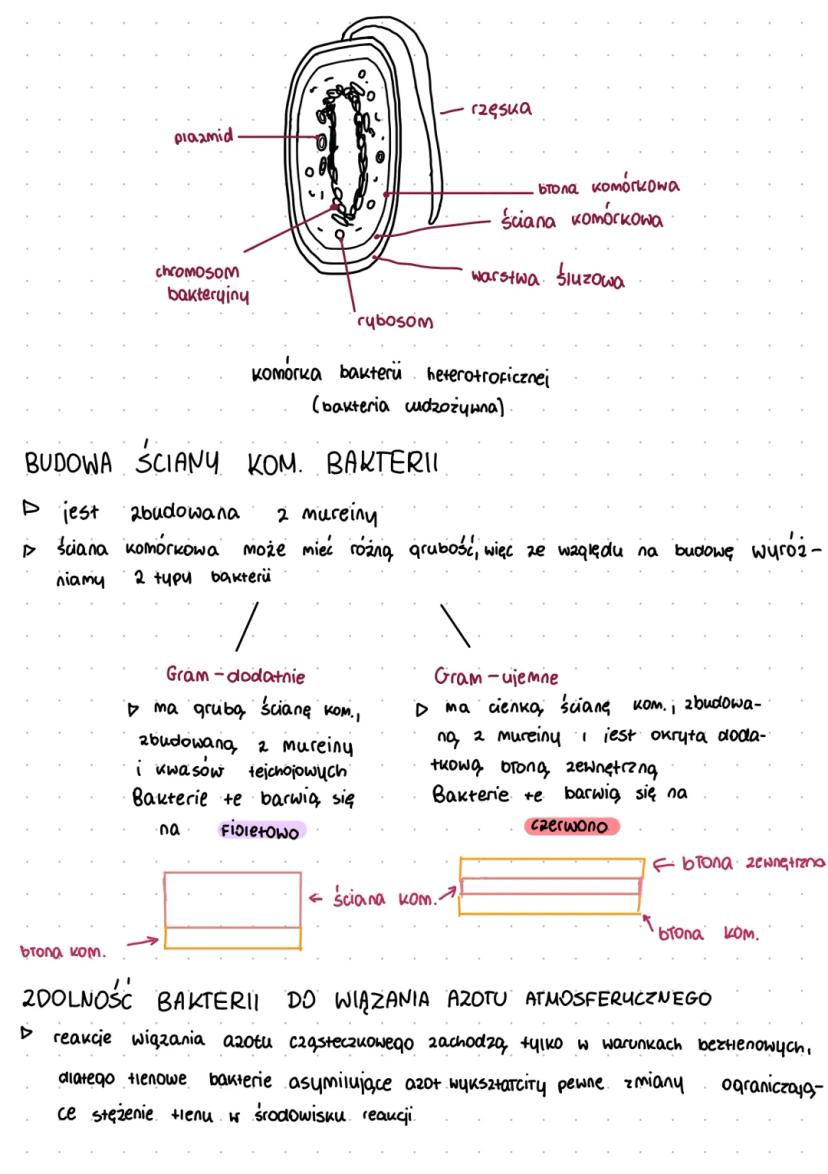 rzęska
plazmid
błona komórkowa
ściana komórkowa
chromosom
bakteryjny
warstwa śluzowa
rybosom
komórka bakterii heterotroficznej
(bakteria cudzożywna)
BUDOWA ŚCIANY KOM. BAKTERII
▷ jest zbudowana z mureiny
▷ ściana komórkowa może mieć różną grubość, więc ze względu na budowę wyróż-
niamy 2 typu bakterii
Gram-dodatnie
▷ ma grubą ścianę kom.,
zbudowaną z mureiny
i kwasów tejchojowych
Bakterie te barwią się
na fioletowo
Gram-ujemne
▷ ma cienką ścianę kom., zbudowa-
ną z mureiny i jest okryta doda-
tkową błoną zewnętrzną
Bakterie te barwią się na
czerwono
← błona zewnętrzna
← ściana kom. →
błona kom. →
błona kom.
ZDOLNOŚĆ BAKTERII DO WIĄZANIA AZOTU ATMOSFERYCZNEGO
▷ reakcje wiązania azotu cząsteczkowego zachodzą tylko w warunkach beztlenowych,
dlatego tlenowe bakterie asymilujące azot wykształciły pewne zmiany ograniczają-
ce stężenie tlenu w środowisku reakcji.